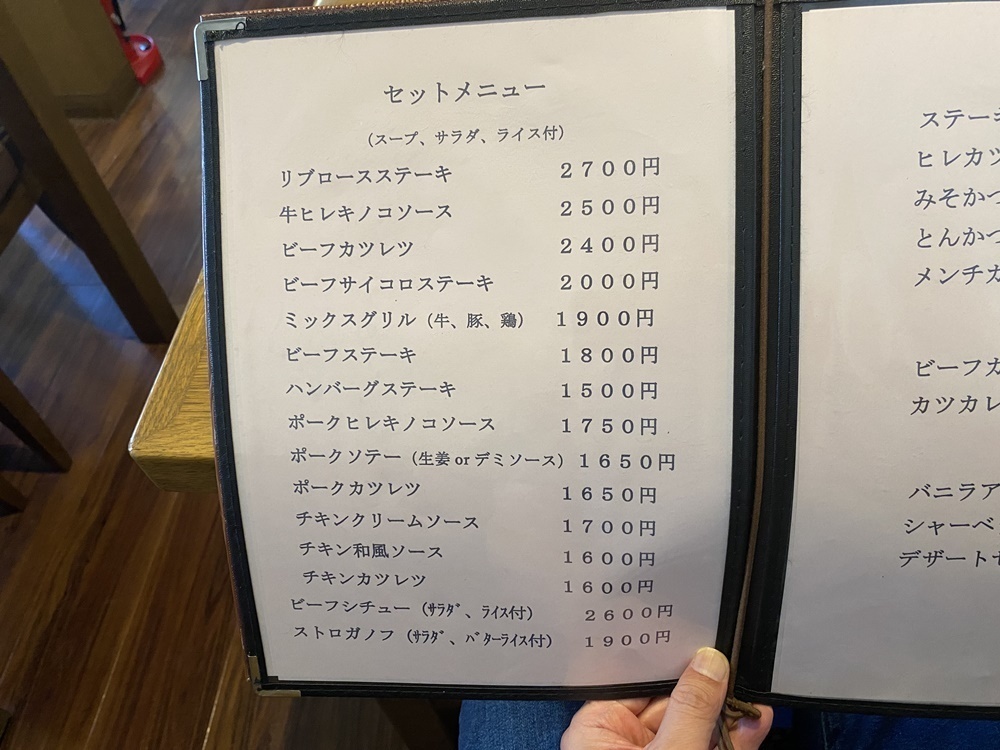 セットメニュー
（スープ、サラダ、ライス付）
リブロースステーキ ２７００円
牛ヒレキノコソース ２５００円
ビーフカツレツ ２４００円
ビーフサイコロステーキ ２０００円
ミックスグリル（牛、豚、鶏） １９００円
ビーフステーキ １８００円
ハンバーグステーキ １５００円
ポークヒレキノコソース １７５０円
ポークソテー（生姜 or デミソース） １６５０円
ポークカツレツ １６５０円
チキンクリームソース １７００円
チキン和風ソース １６００円
チキンカツレツ １６００円
ビーフシチュー（ｻﾗﾀﾞ、ﾗｲｽ付） ２６００円
ストロガノフ（ｻﾗﾀﾞ、ﾊﾞﾀｰﾗｲｽ付） １９００円
ステーキ
ヒレカツ
みそかつ
とんかつ
メンチカ
ビーフカ
カツカレ
バニラア
シャーベ
デザート